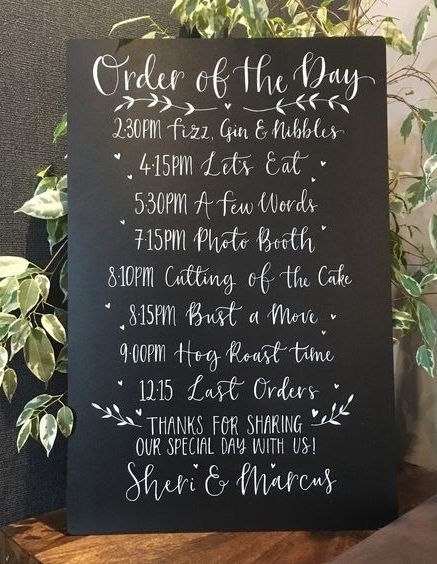 Order of the Day
2:30PM Fizz, Gin & Nibbles
4:15PM Lets Eat
5:30PM A Few Words
7:15PM Photo Booth
8:10PM Cutting of the Cake
8:15PM Bust a Move
9:00PM Hog Roast time
12:15 Last Orders
THANKS FOR SHARING
OUR SPECIAL DAY WITH US!
Sheri & Marcus